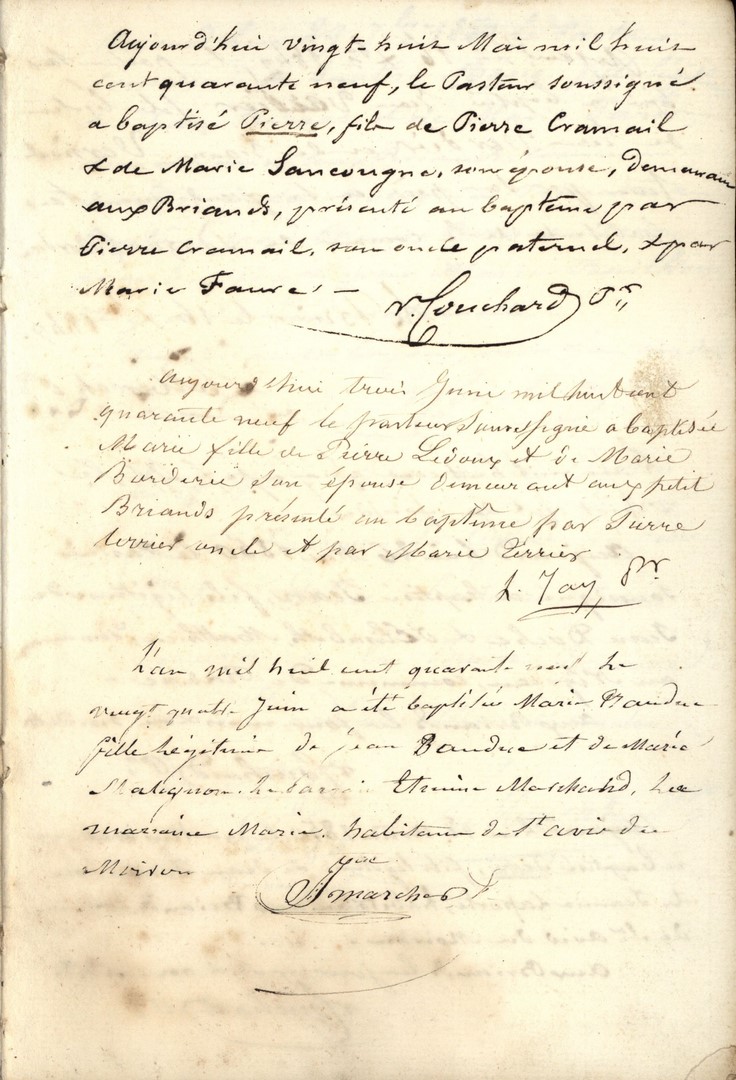 Aujourd'hui vingt-huit Mai mil huit
cent quarante neuf, le Pasteur soussigné
a baptisé Pierre, fils de Pierre Cramail
& de Marie Lancougne, son épouse, demeurant
aux Briands, présenté au baptême par
Pierre Cramail, son oncle paternel, & par
Marie Faure. —
Couchard Pr
Aujourd'hui trois Juin mil huit cent
quarante neuf le pasteur soussigné a baptisée
Marie fille de Pierre Ledoux et de Marie
Borderie son épouse demeurant aux petit
Briands présenté au baptême par Pierre
terrier oncle et par Marie Terrier
L. Jay Pr
L'an mil huit cent quarante neuf le
vingt quatre Juin a été baptisée Marie Bauduc
fille légitime de jean Bauduc et de Marie
Le parrain Etienne Marchand, La
marraine Marie. habitans de St avis du
Moiron